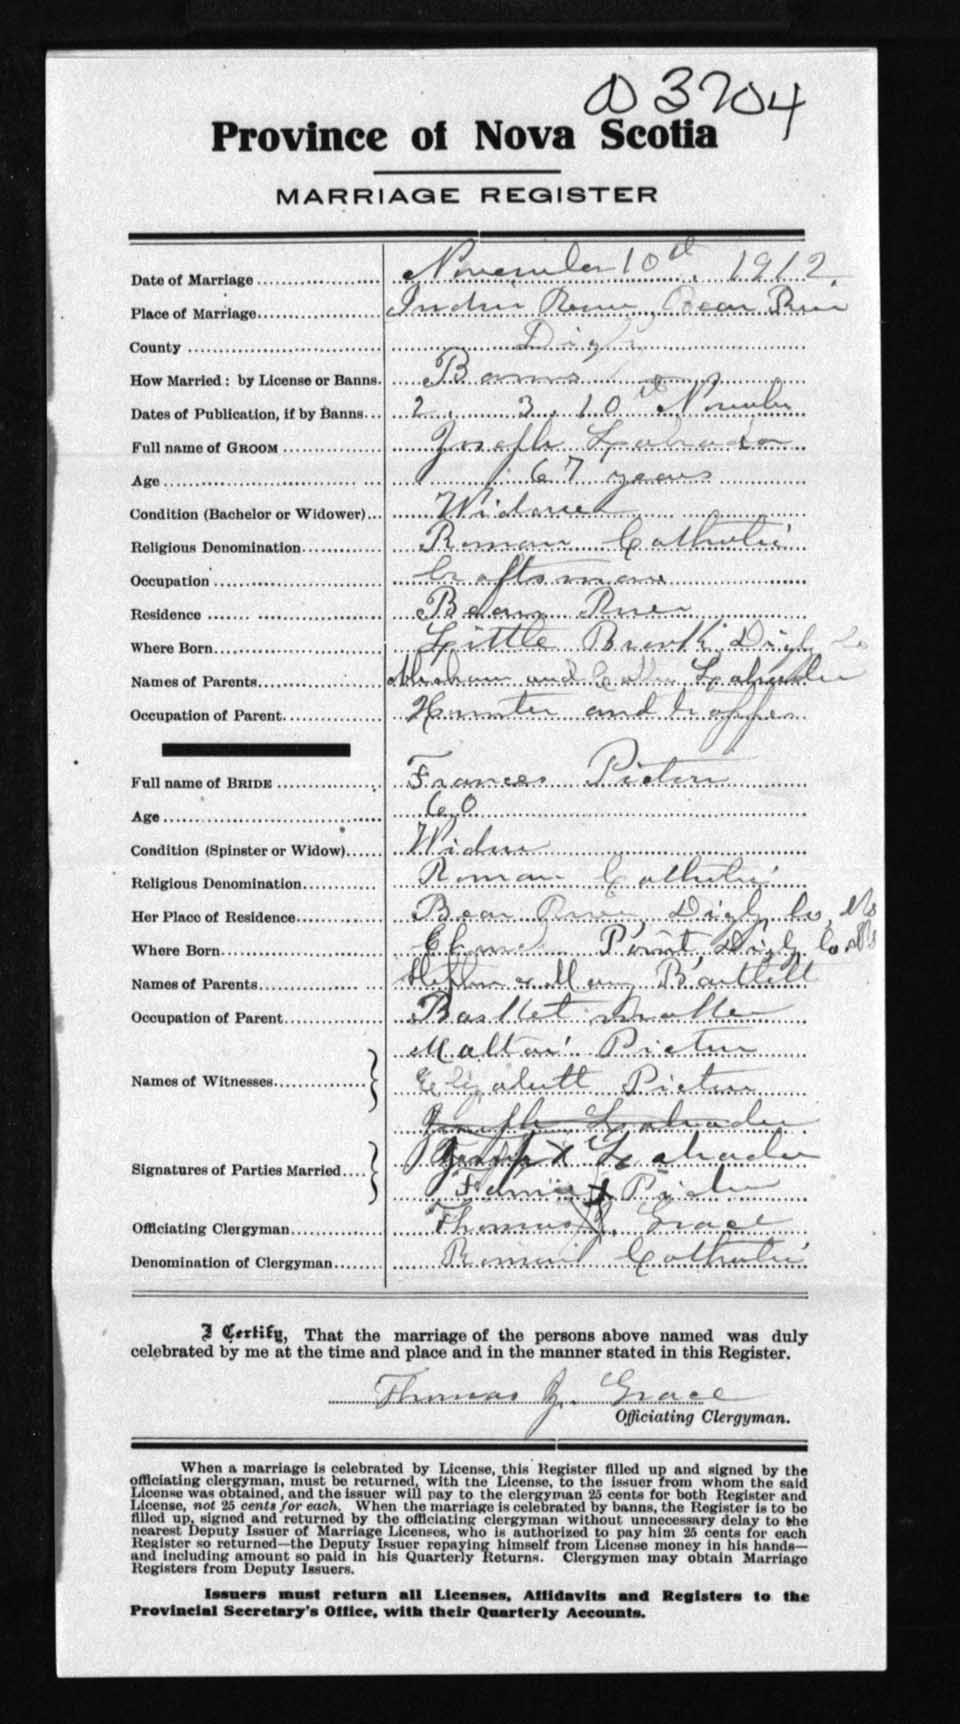 D 3704
Province of Nova Scotia
MARRIAGE REGISTER
Date of Marriage November 10th, 1912
Place of Marriage Bear River
County Digby
How Married: by License or Banns. Banns
Dates of Publication, if by Banns 2, 3, 10th November
Full name of GROOM Joseph Labrador
Age 67 years
Condition (Bachelor or Widower) Widower
Religious Denomination Roman Catholic
Occupation Craftsman
Residence Bear River
Where Born Little Brook Digby Co
Names of Parents Abraham and Labrador
Occupation of Parent Hunter and trapper
Full name of BRIDE Frances Pictou
Age 60
Condition (Spinster or Widow) Widow
Religious Denomination Roman Catholic
Her Place of Residence Bear River, Digby Co, NS
Where Born Point, Digby Co NS
Names of Parents Stephen & Mary Bartlett
Occupation of Parent Basket maker
Pictou
Names of Witnesses Elizabeth Pictou
Joseph Labrador
Signatures of Parties Married Joseph X Labrador
X Pictou
Officiating Clergyman Thomas J. Grace
Denomination of Clergyman Roman Catholic
I Certify, That the marriage of the persons above named was duly
celebrated by me at the time and place and in the manner stated in this Register.
Thomas J. Grace
Officiating Clergyman.
When a marriage is celebrated by License, this Register filled up and signed by the
officiating clergyman, must be returned, with the License, to the issuer from whom the said
License was obtained, and the issuer will pay to the clergyman 25 cents for both Register and
License, not 25 cents for each. When the marriage is celebrated by banns, the Register is to be
filled up, signed and returned by the officiating clergyman without unnecessary delay to the
nearest Deputy Issuer of Marriage Licenses, who is authorized to pay him 25 cents for each
Register so returned—the Deputy Issuer repaying himself from License money in his hands—
and including amount so paid in his Quarterly Returns. Clergymen may obtain Marriage
Registers from Deputy Issuers.
Issuers must return all Licenses, Affidavits and Registers to the
Provincial Secretary's Office, with their Quarterly Accounts.